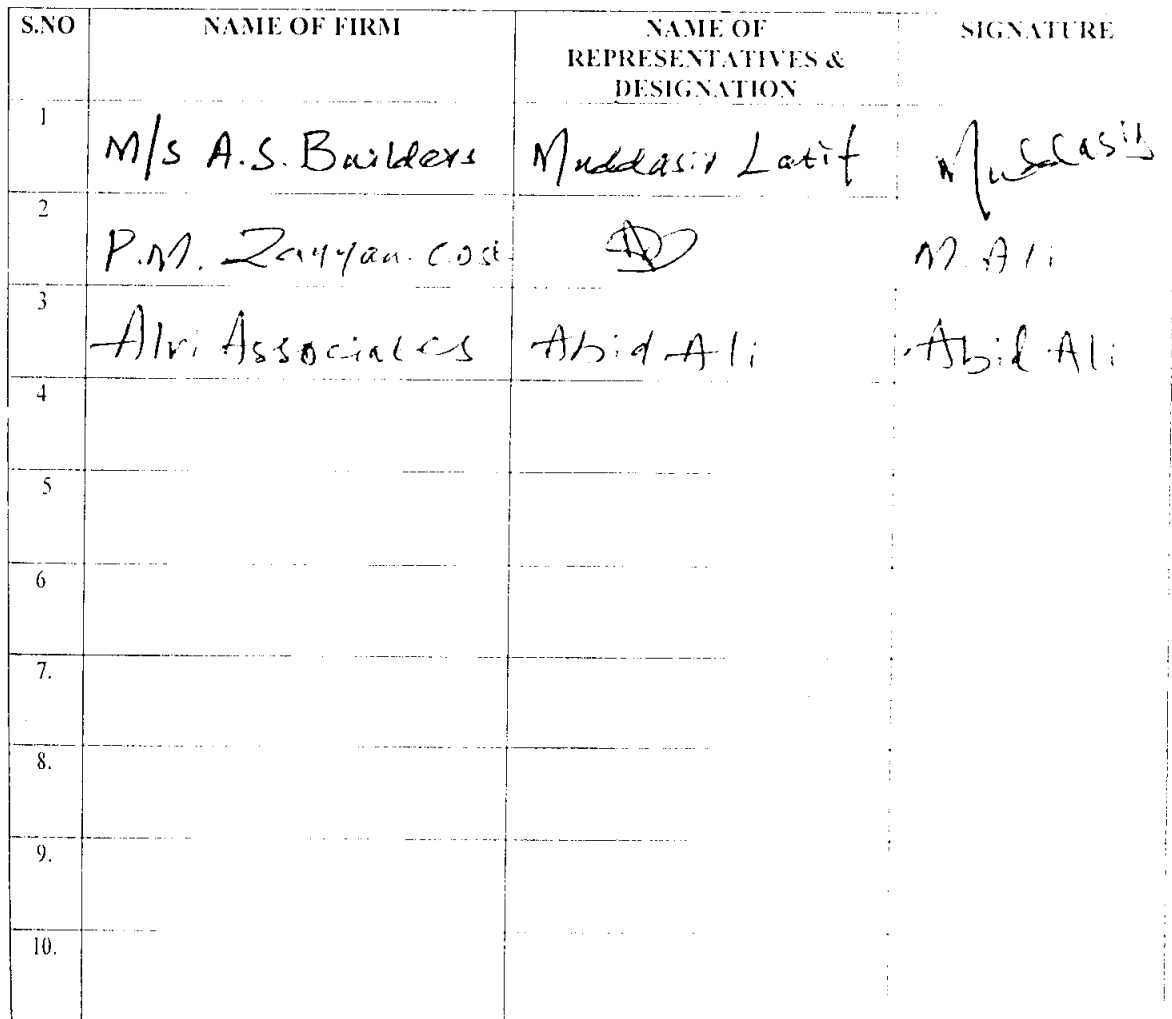 S.NO NAME OF FIRM NAME OF REPRESENTATIVES & DESIGNATION SIGNATURE
1 M/S A.S. Builders Muddasir Latif Muddasir
2 P.M. Zayyan. Cost. M. Ali
3 Alvi Associates Abid Ali Abid Ali
4
5
6
7.
8.
9.
10.